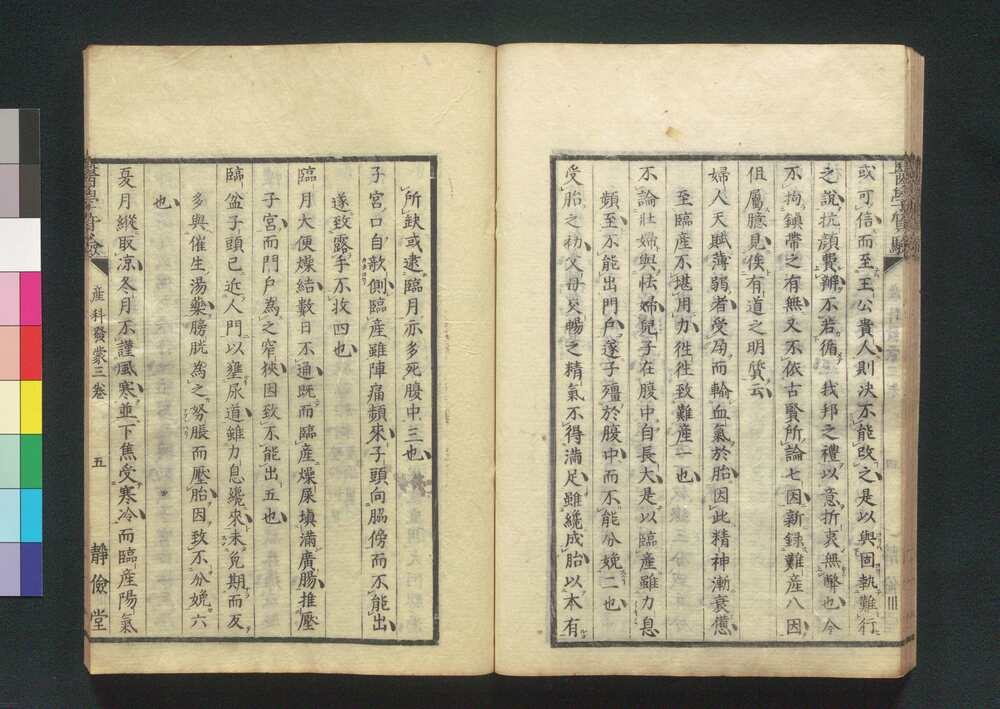 或可信而至王公貴人則決不能改之是以與固執難行
之說抗顏費辨不若循我邦之禮以意折衷無弊也今
不拘鎮帶之有無又不依古賢所論七因新錄難產八因
但屬臆見俟有道之明質云
婦人天賦薄弱者受孕而輸血氣於胎因此精神漸衰憊
至臨產不堪用力往往致難產一也
不論壯婦與怯婦兒子在腹中自長大是以臨產雖力息
頻至不能出門戶遂子殭於腹中而不能分娩二也
受胎之初父母交暢之精氣不得滿足雖纔成胎以本有
所缺或逮臨月亦多死腹中三也
子宮口自欹側臨產雖陣痛頻來子頭向腸傍而不能出
遂致露手不收四也
臨月大便燥結數日不通既而臨產燥屎塡滿廣腸推壓
子宮而門戶為之窄狹因致不能出五也
臨盆子頭已近人門以壅尿道雖力息纔來未免期而友
多與催生湯藥膀胱為之努脹而壓胎因致不分娩六
也
夏月縱取涼冬月不謹風寒並下焦受寒冷而臨產陽氣
產科發蒙三卷
五
靜儉堂